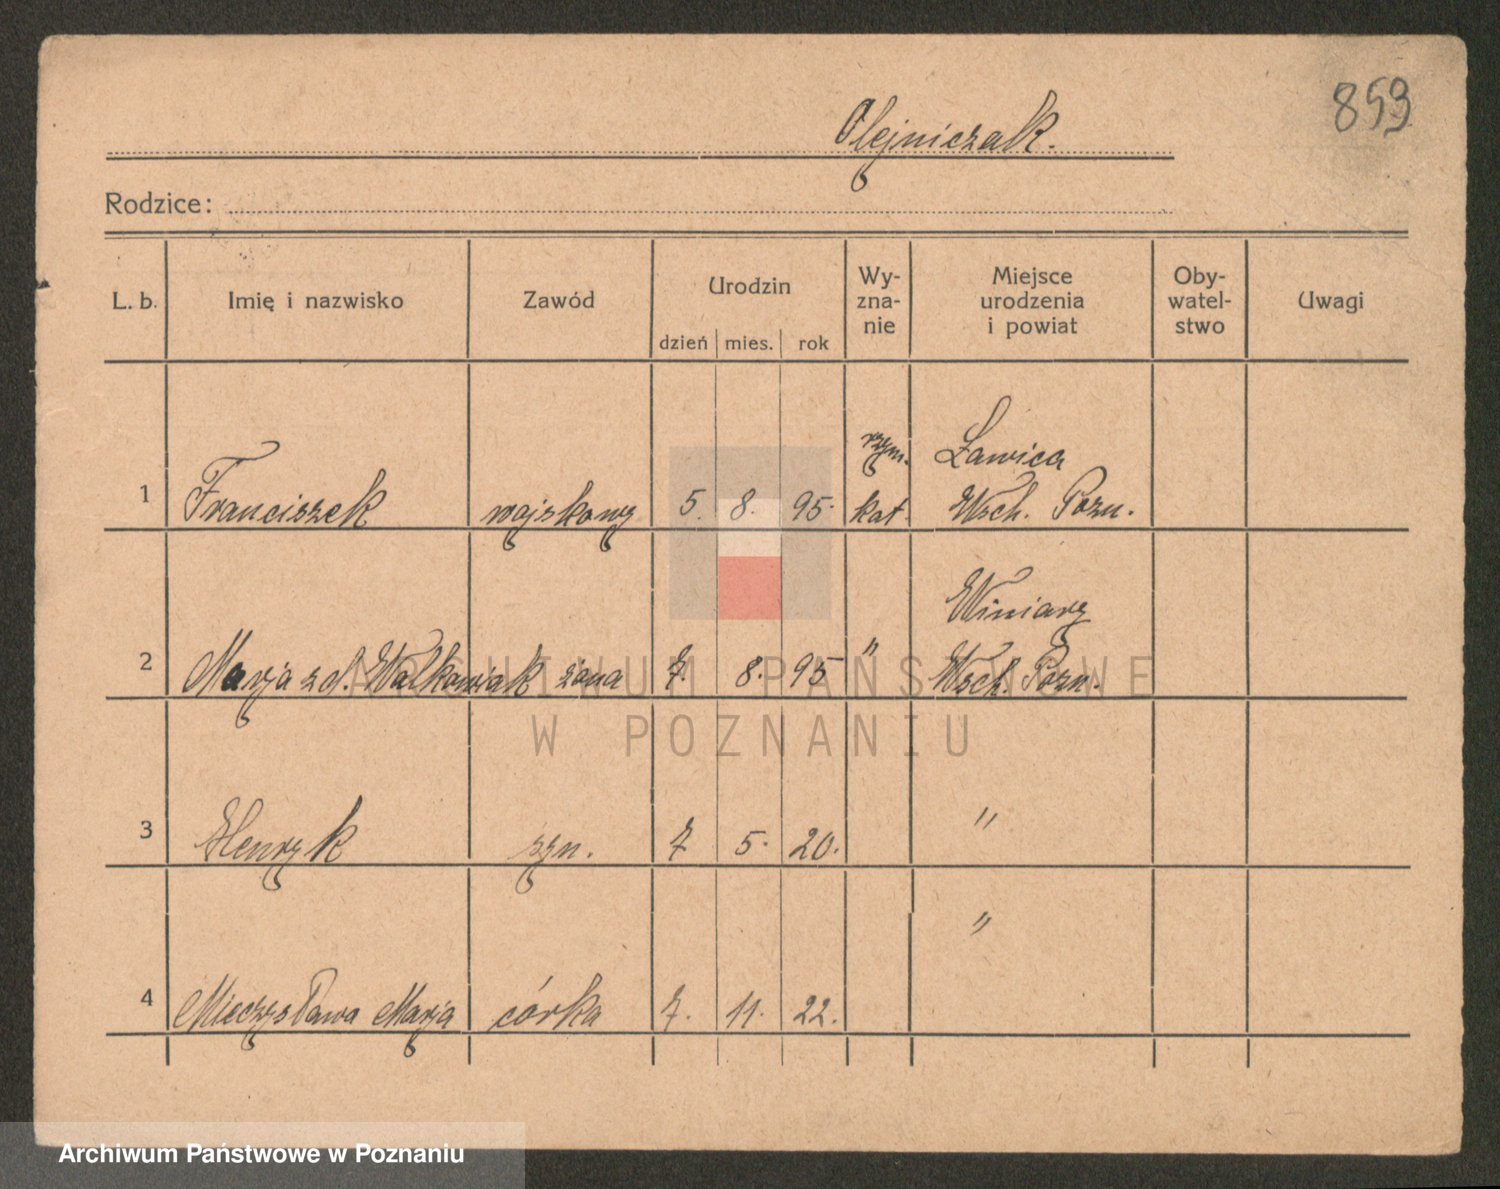 853
Olejniczak.
Rodzice:
L. b. Imię i nazwisko Zawód Urodzin dzień mies. rok Wy-zna-nie Miejsce urodzenia i powiat Oby-watel-stwo Uwagi
rzym. Ławica
1 Franciszek wojskowy 5. 8. 95. kat. Wsch. Pozn.
Winiary
2 Marja z d. Walkowiak żona 7. 8. 95 " Wsch. Pozn.
3 Henryk syn. 7 5. 20. "
"
4 Mieczysława Marja córka 7. 11. 22.
ARCHIWUM PAŃSTWOWE
W POZNANIU
Archiwum Państwowe w Poznaniu